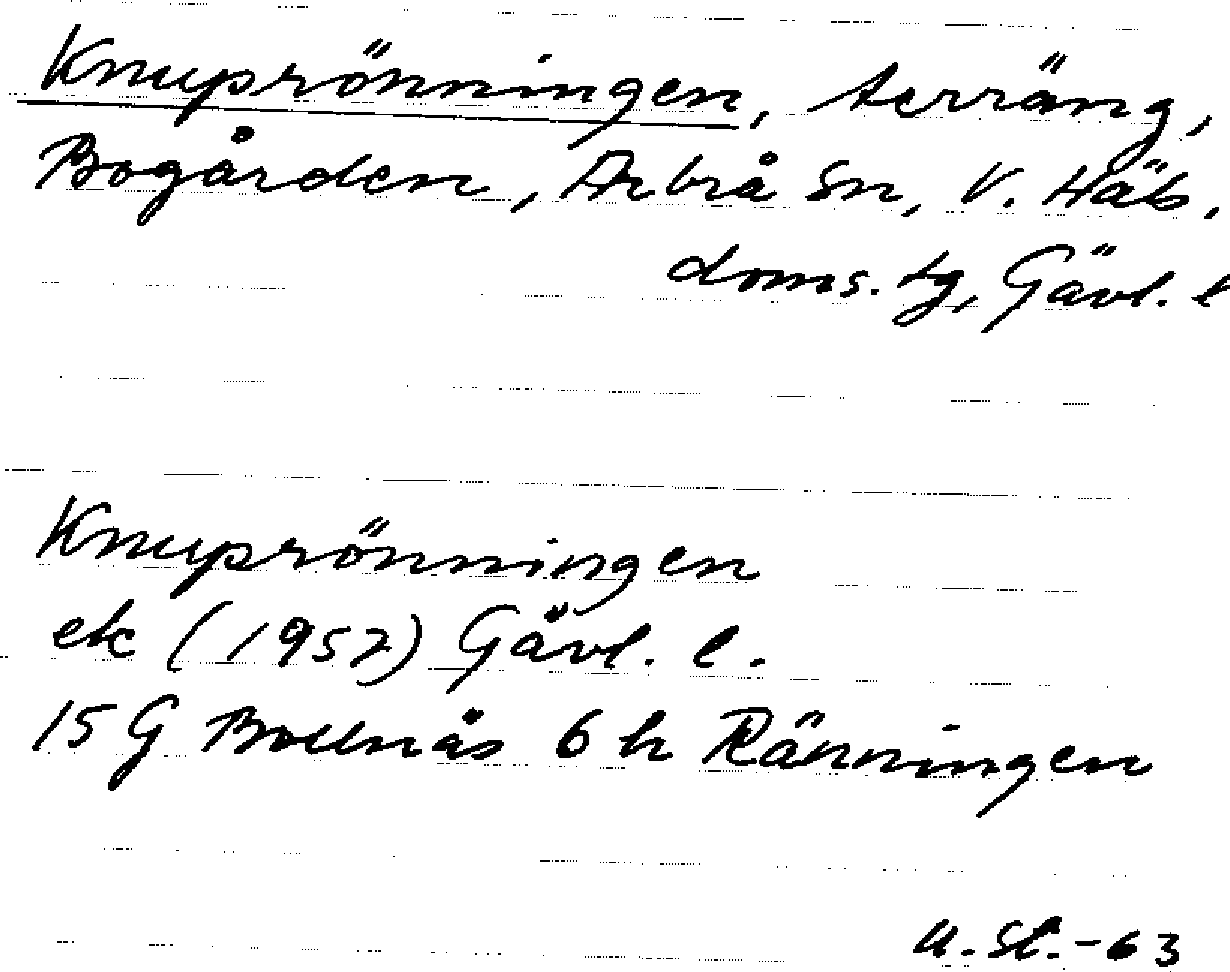 Knuprönningen, terräng,
Bogården, Arbrå Sn, V. Häls.
doms. tg, Gävl. l
Knuprönningen
ek (1957) Gävl. l.
15 G Bollnäs 6 h Ränningen
U. St. -63